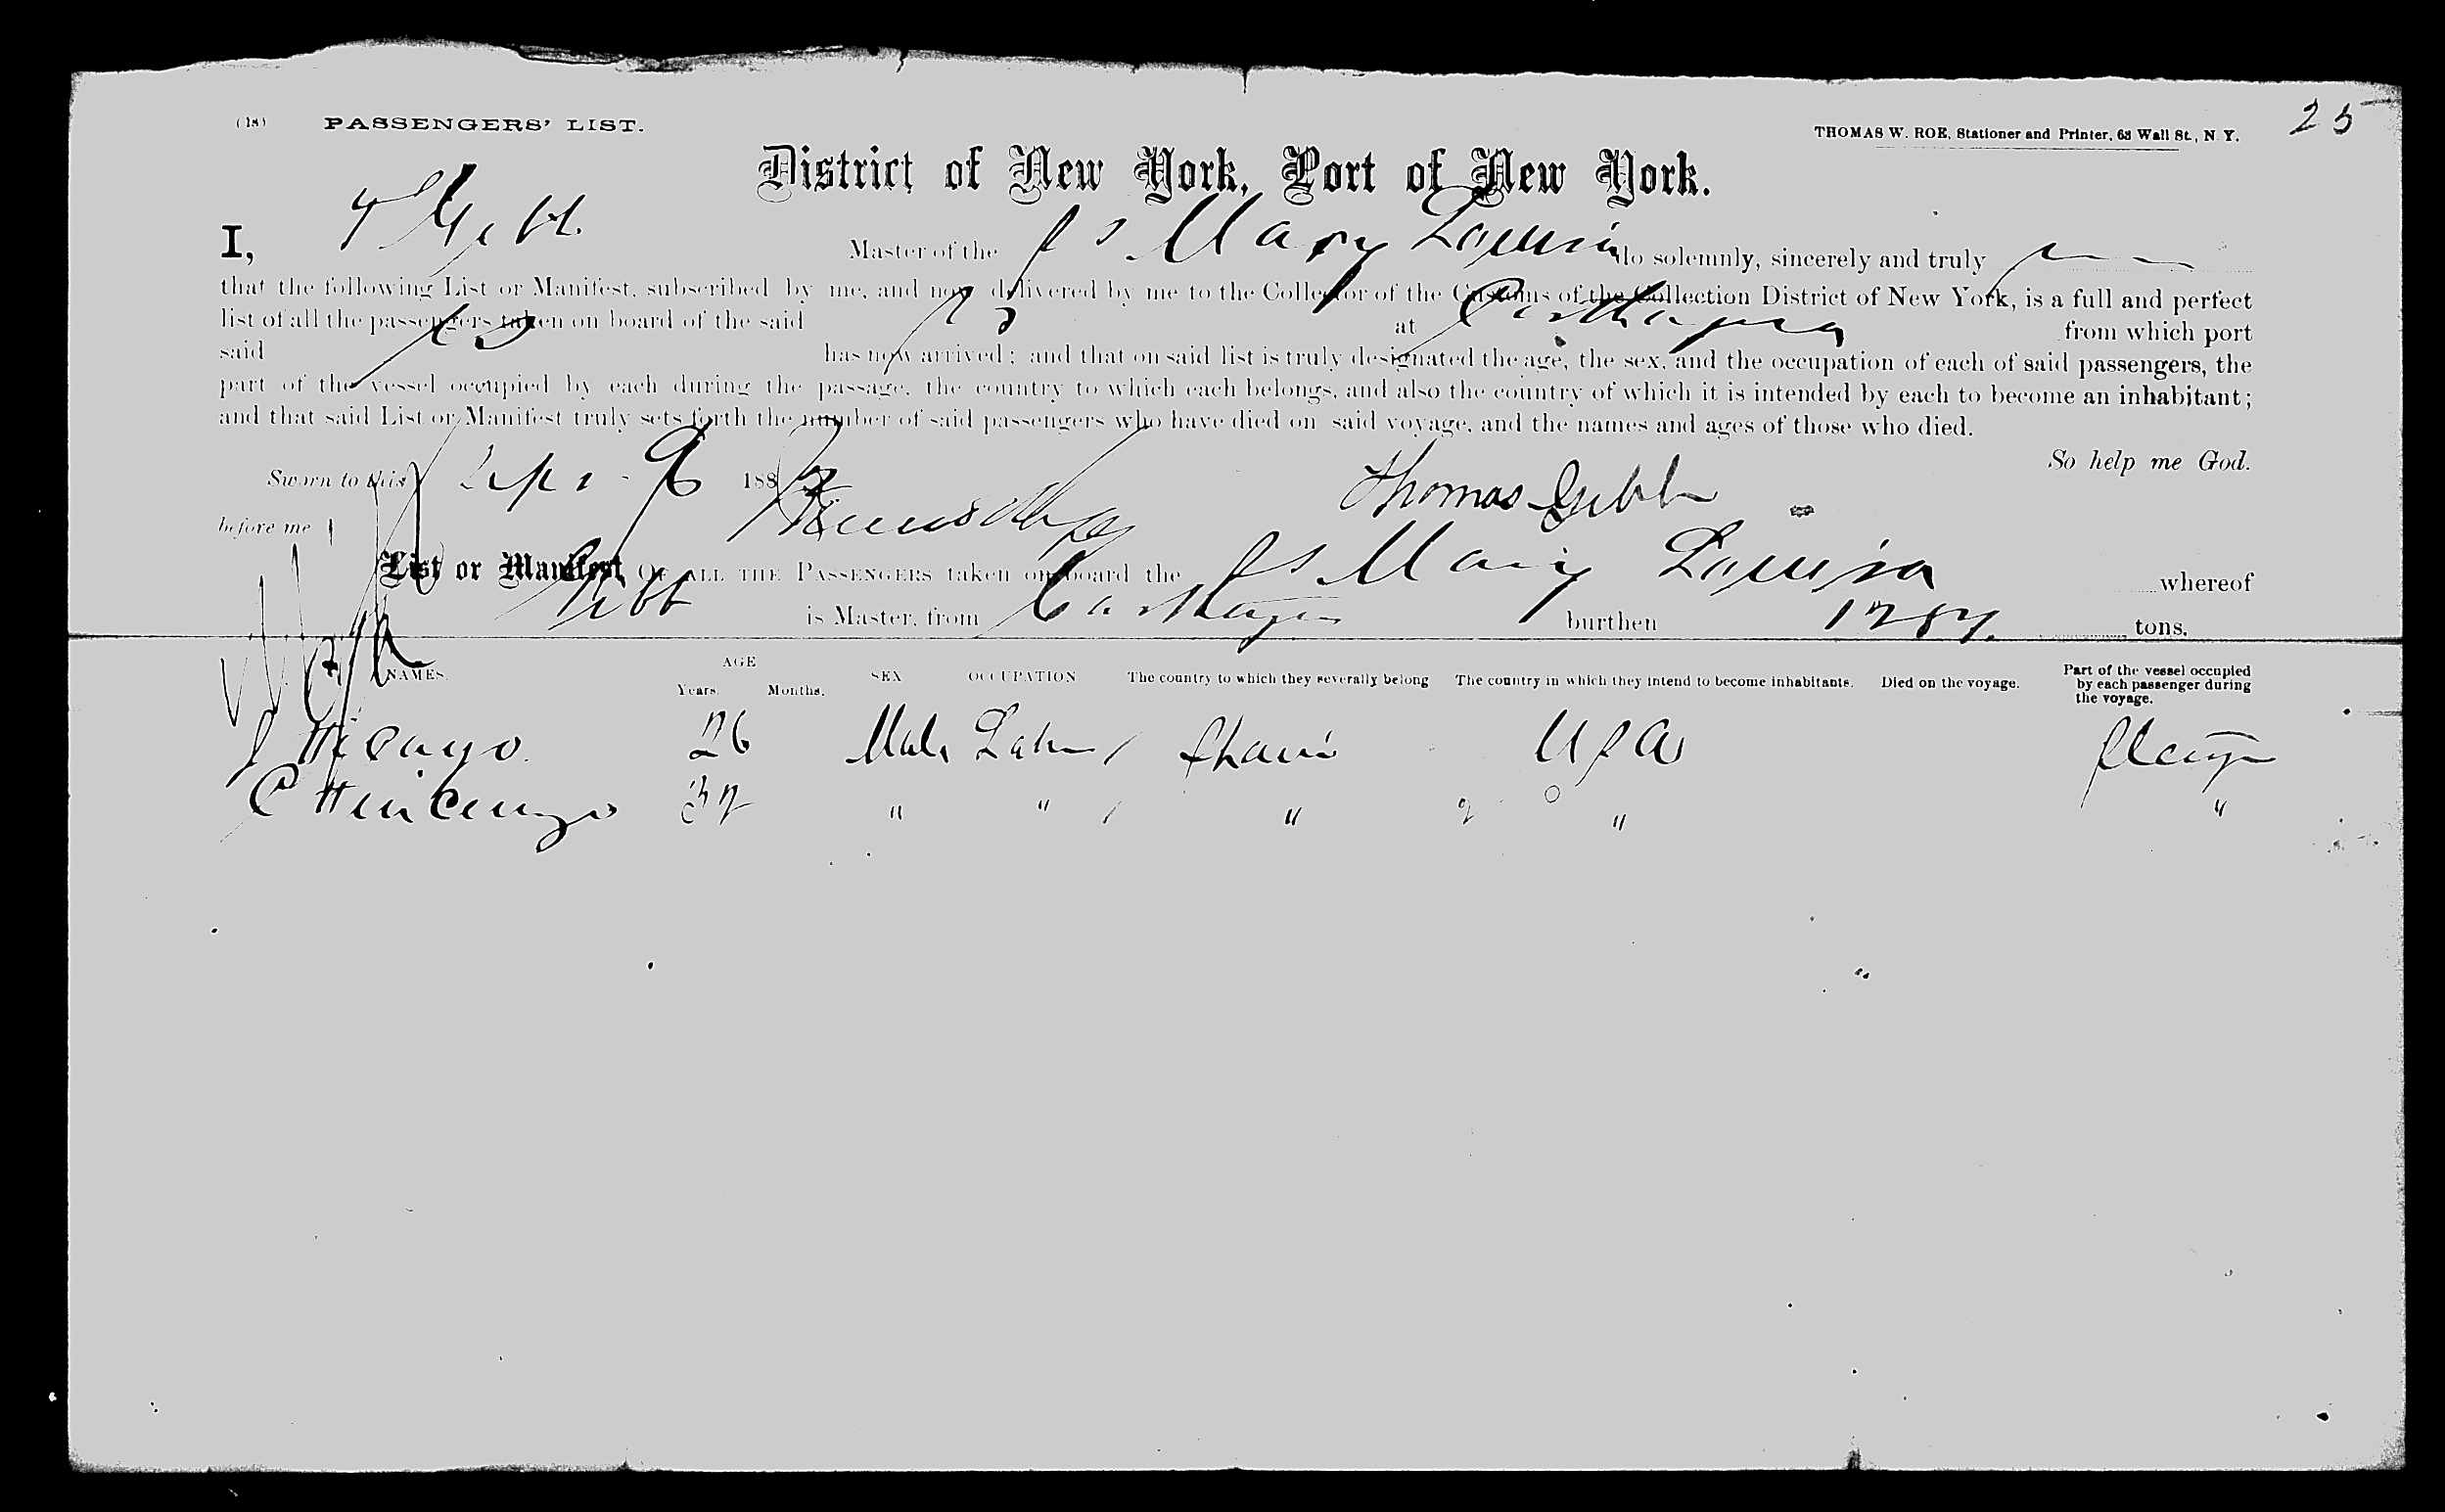 (18) PASSENGERS' LIST.
THOMAS W. ROE, Stationer and Printer, 63 Wall St., N. Y.
25
District of New York, Port of New York.
I, T Gibb Master of the S S Mary Louisa do solemnly, sincerely and truly
that the following List or Manifest, subscribed by me, and now delivered by me to the Collector of the Customs of the Collection District of New York, is a full and perfect
list of all the passengers taken on board of the said SS at Carthagena from which port
said SS has now arrived; and that on said list is truly designated the age, the sex, and the occupation of each of said passengers, the
part of the vessel occupied by each during the passage, the country to which each belongs, and also the country of which it is intended by each to become an inhabitant;
and that said List or Manifest truly sets forth the number of said passengers who have died on said voyage, and the names and ages of those who died.
So help me God.
Sworn to this Sept 96 188
Thomas Gibb
before me
List or Manifest OF ALL THE PASSENGERS taken on board the S S Mary Louisa whereof
Gibb is Master, from Carthagena burthen 1284 tons.
NAMES. AGE Years. Months. SEX OCCUPATION The country to which they severally belong The country in which they intend to become inhabitants. Died on the voyage. Part of the vessel occupied by each passenger during the voyage.
26 Male Labr Spain U S A Steerage
32 " " " " "